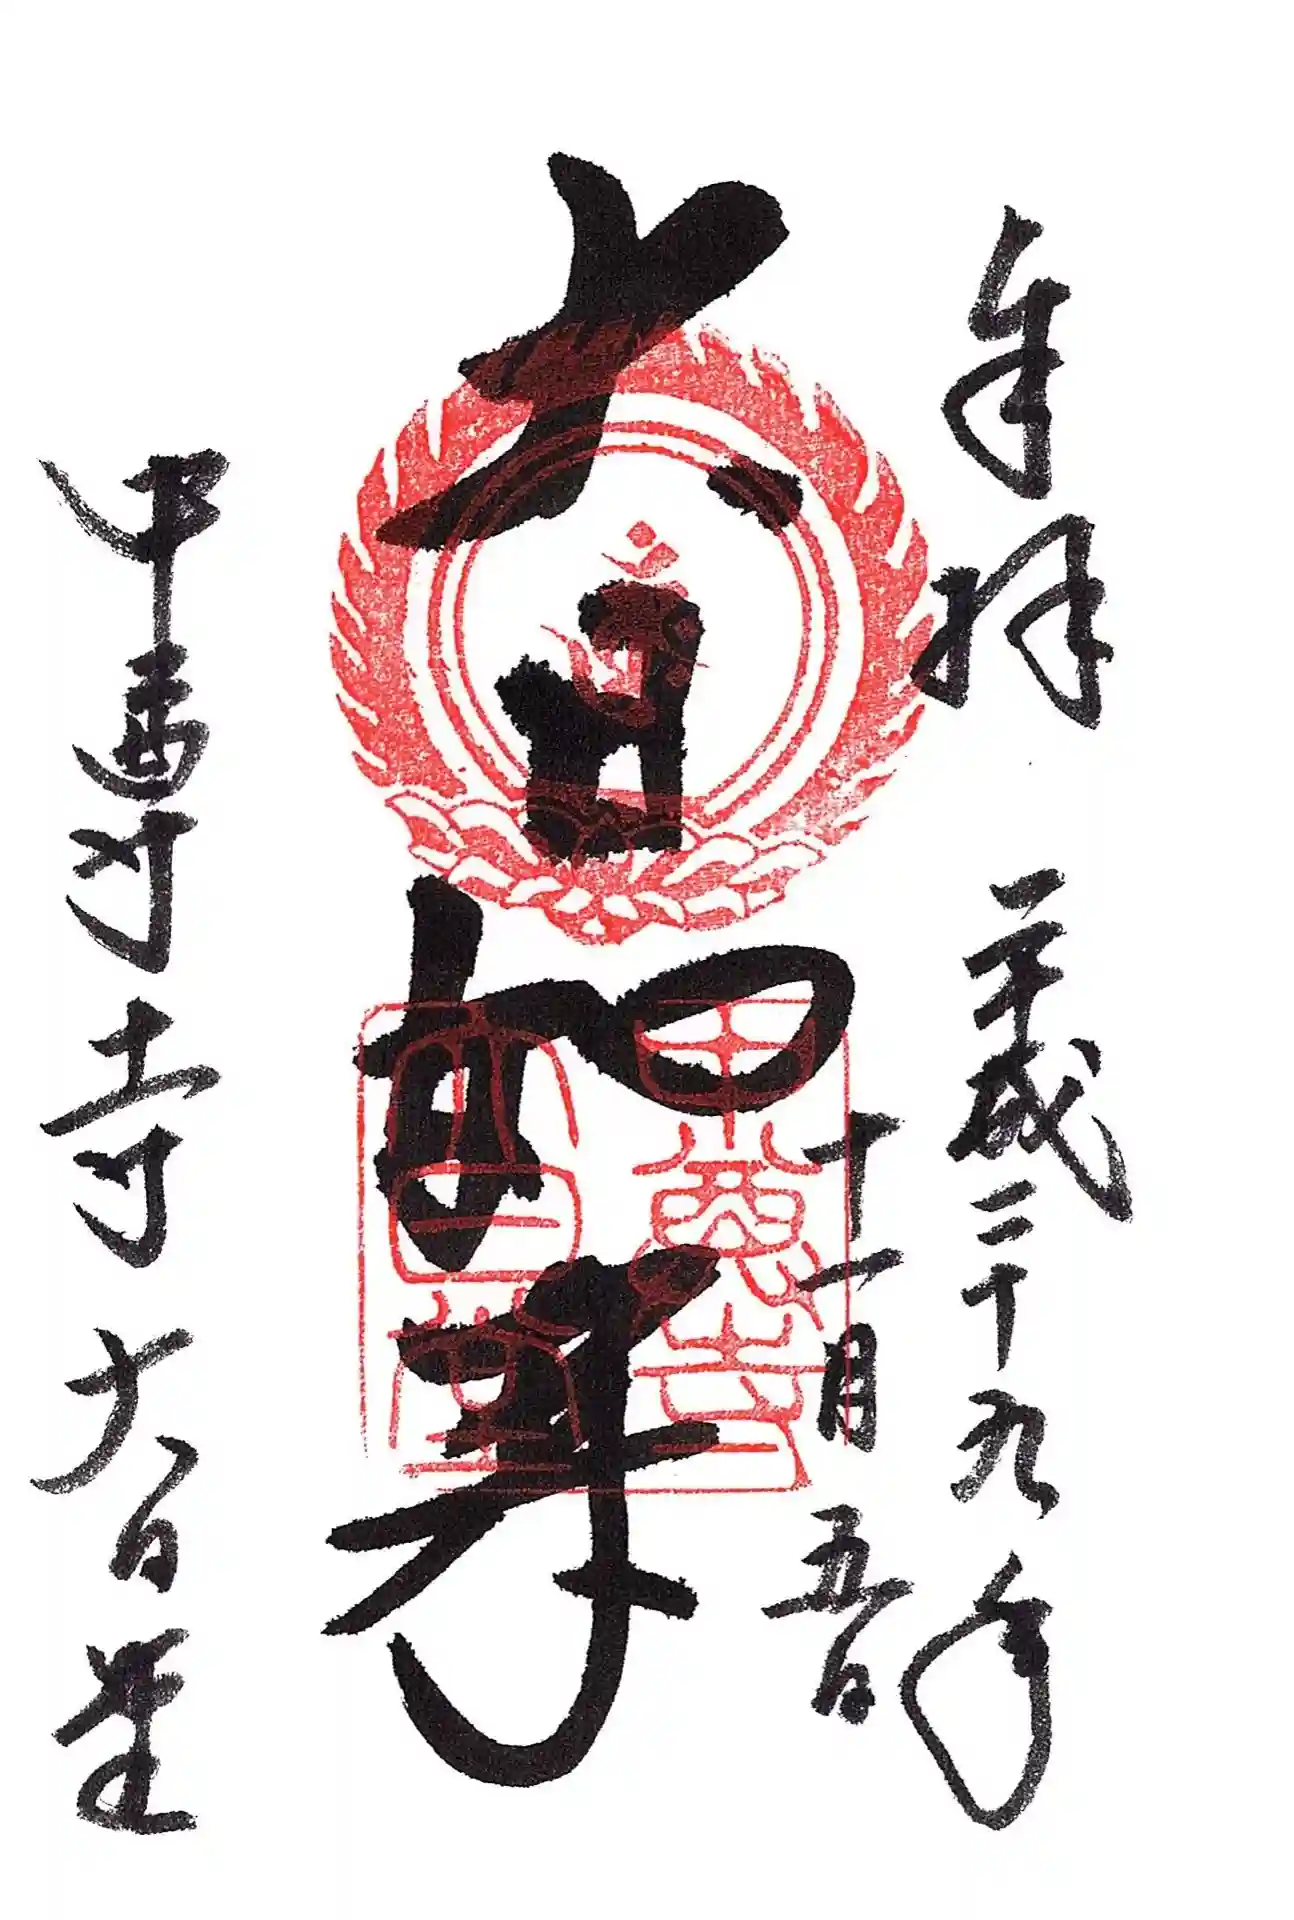 奉拝
平成二十九年
十一月五日
大日如来
中尊寺
大日堂
中尊寺大日堂